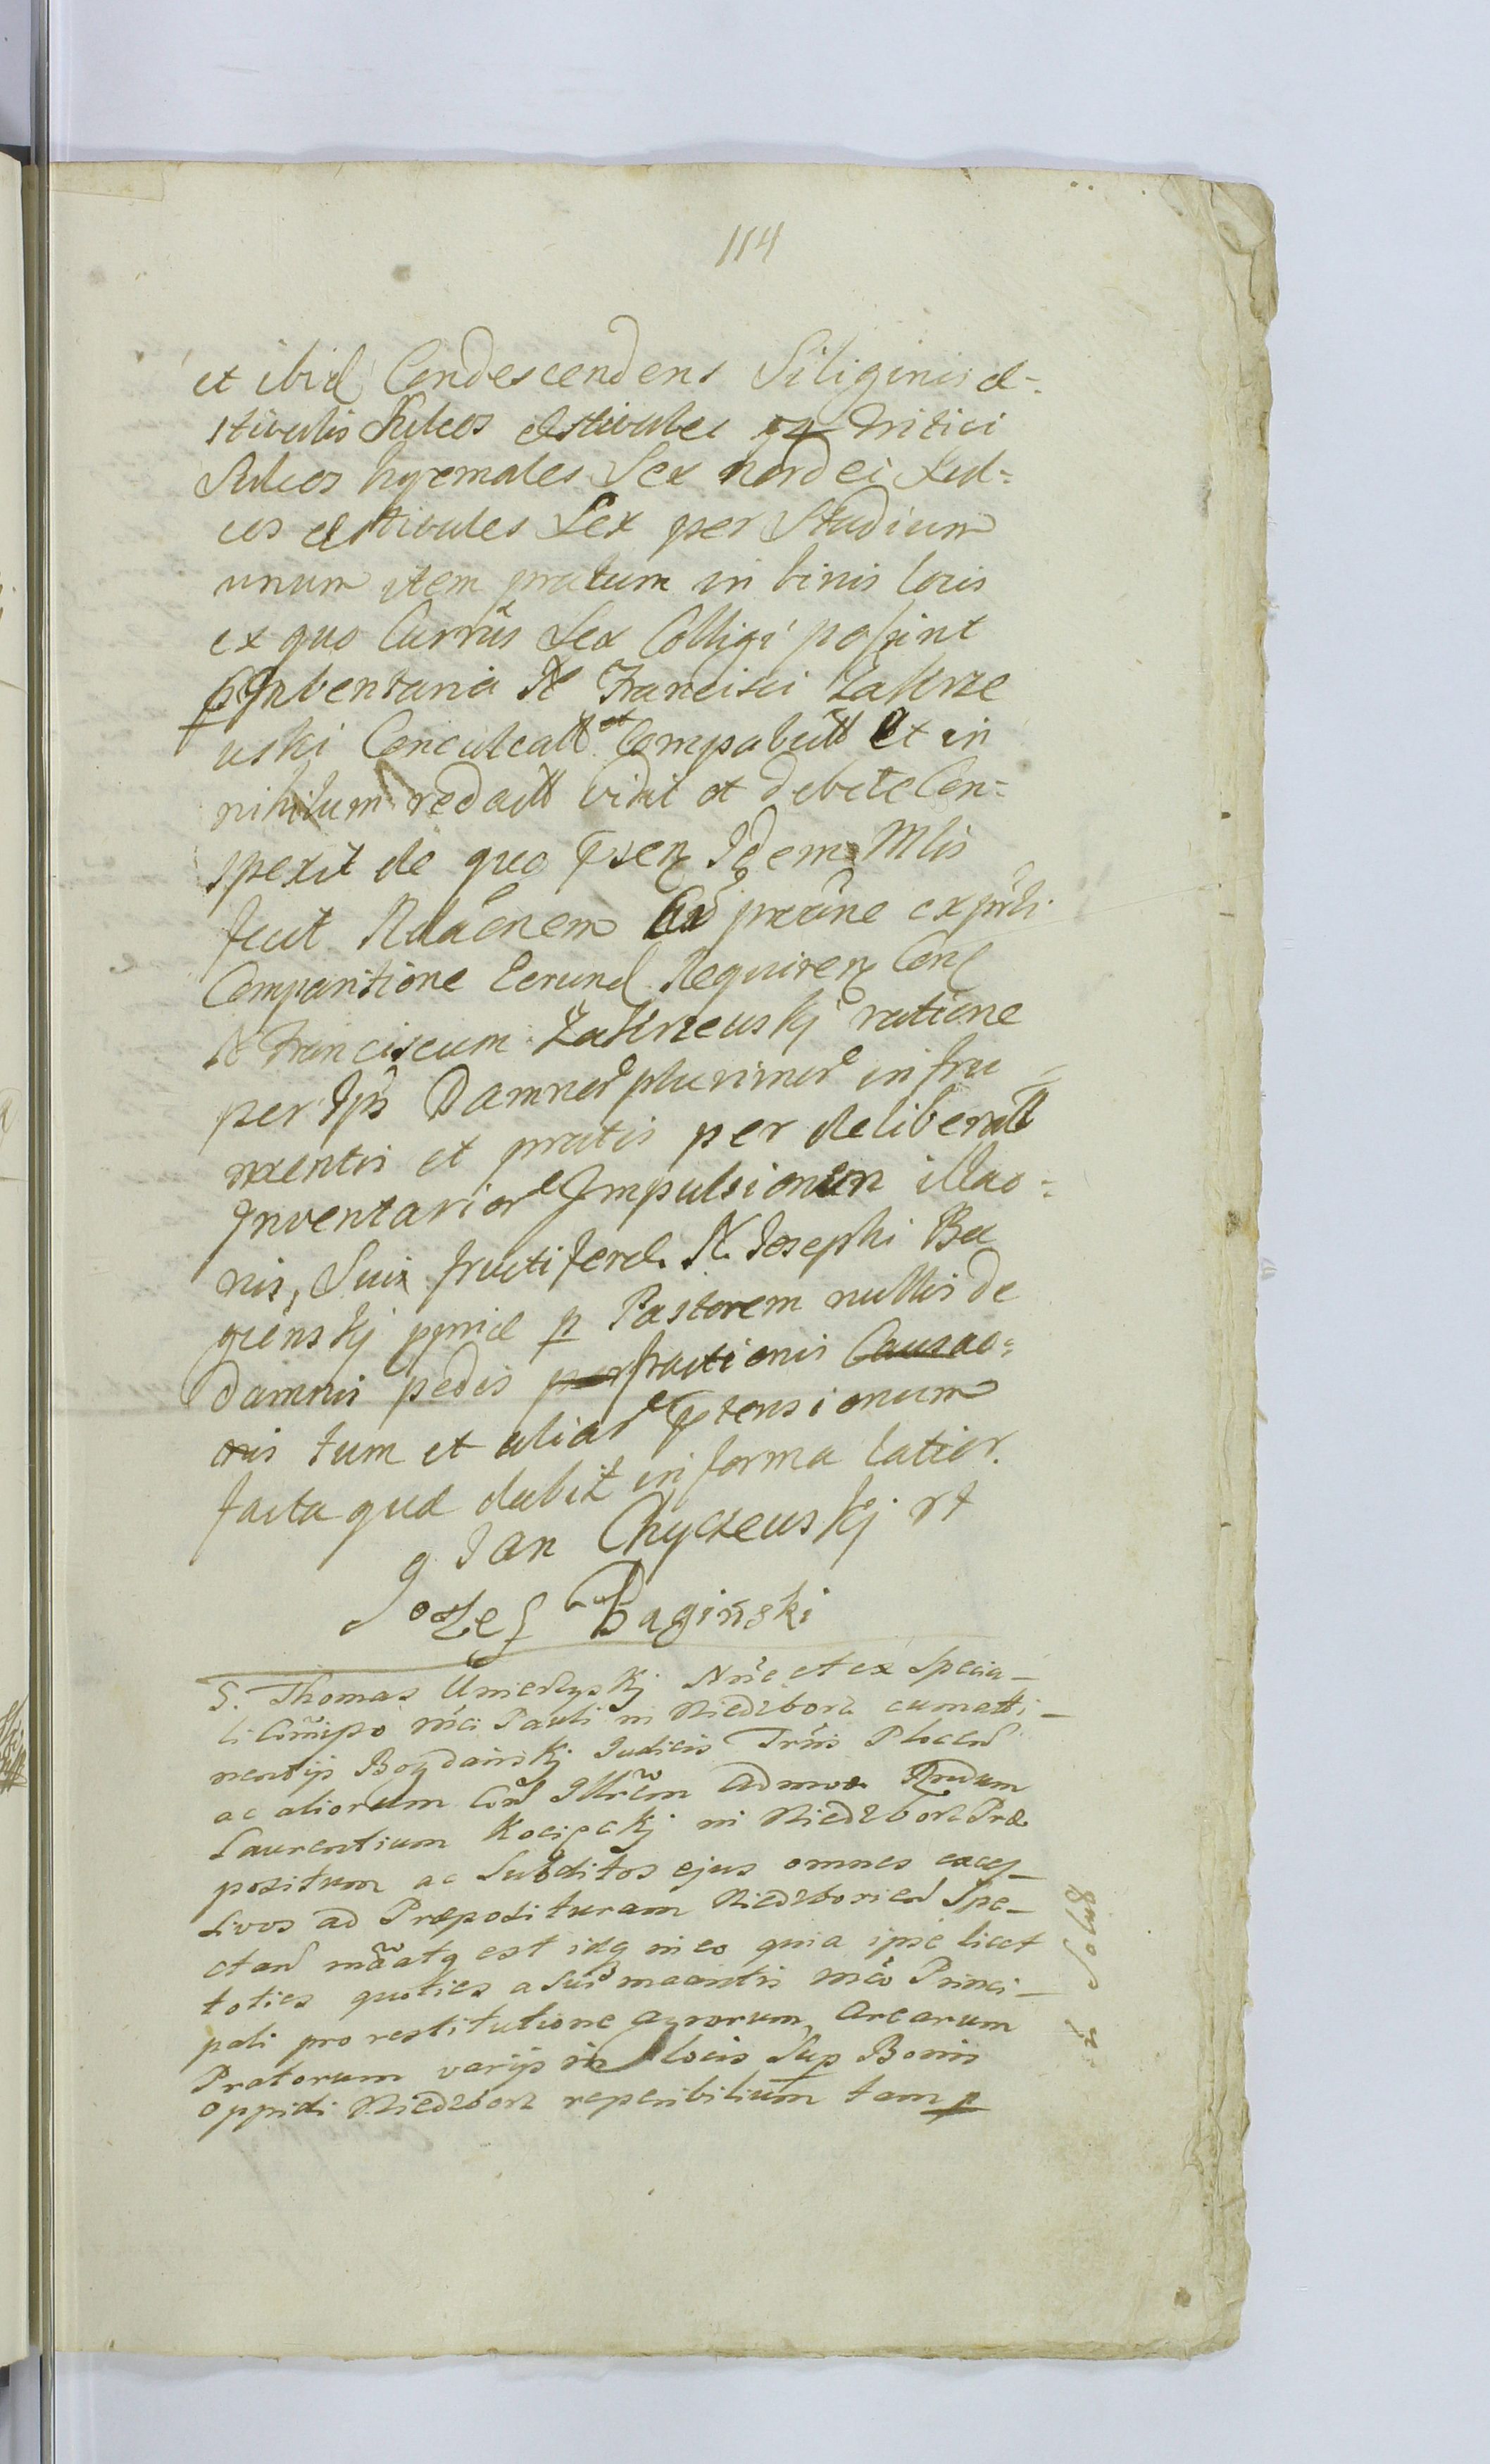 114
et ibid Condescendens Siliginis æ-
stivalis Sulcos æstivales Tritici
Sulcos hyemales Sex hordei Sul=
cos æstivales Sex per Studium
unum item pratum in binis locis
ex quo Currus Sex Colligi possint
p Inventaria N Francisci Zakrze
uski Conculcatt et Compabutt Et in
nihilum redactt vidit et debite Con=
spexit de quo Idem Mlis
fecit Rlaonem
Comparitione Eorund Requiren Con
N Franciscum Zakrzeuskj ratione
per Ips Damnor plurimor in fru
mentis et pratis per deliberatt
Inventarior Impulsionem illao=
nis, Suis fructiferæ. N. Josephi Ba
gienskj ppriæ p Pastorem nullis de
damnis pedis per fractionis Causao=
nis tum et aliar Ptensionum
facta quæ dabit in forma latior.
g Jan Chyczeuskj rt
Jozef Bagiński
S. Thomas Unierzyskj Nrie et ex Specia-
li Compo Mci Pauli in Niedzborz cumatti-
nentijs Boydańskj Judicis Trris Plocen
ac aliorum Con Illrem admod Rndum
Laurentium Kocięckj in Niedzborz Præ
positum ac Subditos ejus omnes excep-
tivos ad Præposituram Niedzborien Spe-
ctan est idq in eo quia ipse licet
toties quoties a Suis Mco Princi-
pali pro restitutione agrorum, arearum
Pratorum varijs in locis Sup Bonis
oppidi Niedzborz reperibilium tam p